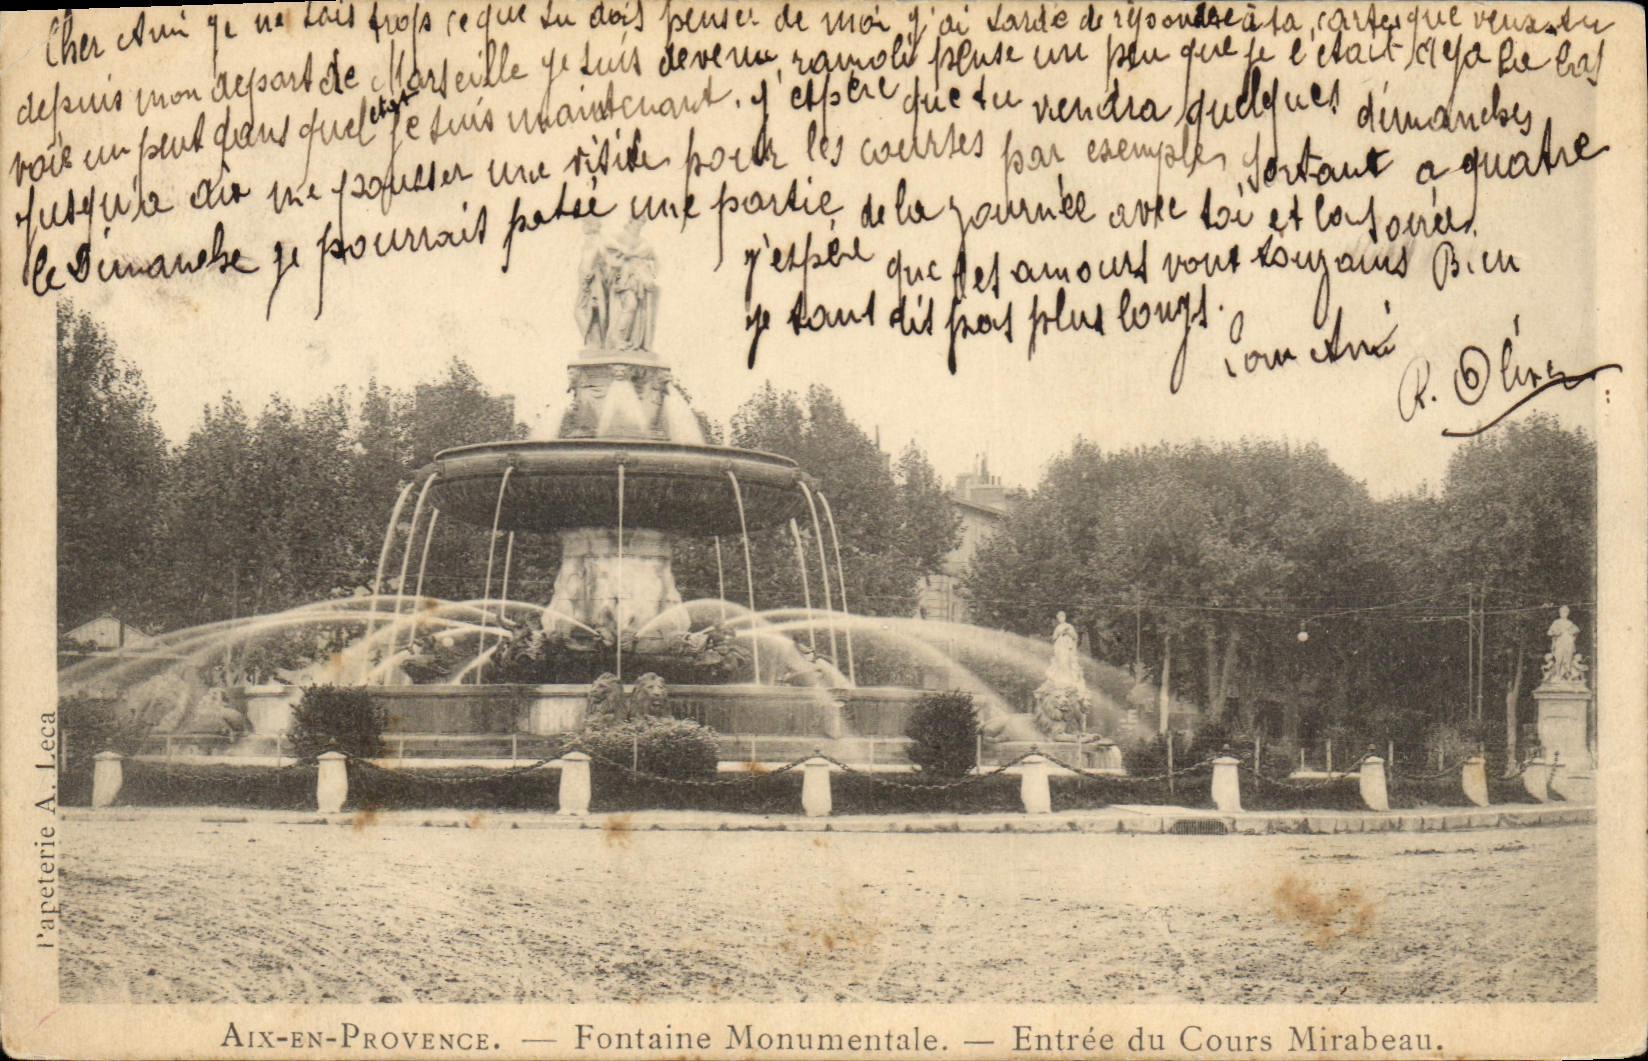 Cher Ami je ne sais trop ce que tu dois penser de moi j'ai tardé de répondre à ta carte que veux-tu
depuis mon depart de Marseille je suis devenu ramoli pense un peu que je l'étais deja la bas
voie un peut dans quel etat je suis maintenant. j'espère que tu viendra quelques dimanches
jusqu'a Aix me pousser une visite pour les courses par exemple, sortant a quatre
le Dimanche je pourrait passé une partie de la journée avec toi et la soirée.
j'espére que tes amours vont toujours Bien
je tant dis pas plus longs.
Ton Ami
R. Olive
Papeterie A. Leca
AIX-EN-PROVENCE. — Fontaine Monumentale. — Entrée du Cours Mirabeau.